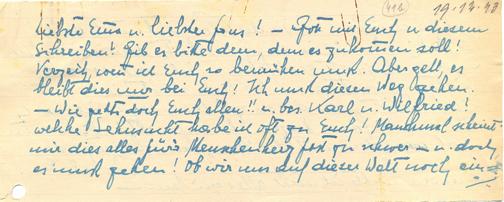 418 19.12.43
Liebste Erna u. liebster Hans! – Gott mit Euch u diesem
Schreiben! Gib es bitte dem, dem es zukommen soll!
Verzeih, wenn ich Euch so bemühen muß. Aber gelt, es
bleibt dies nur bei Euch! Ich muß diesen Weg gehen.
– Wie geht's doch Euch allen!! u. bes. Karl u. Wilfried!
welche Sehnsucht habe ich oft zu Euch! Manchmal scheint
mir dies alles fürs Menschenherz fast zu schwer – u. doch
es muß gehen! Ob wir uns auf dieser Welt noch ein=